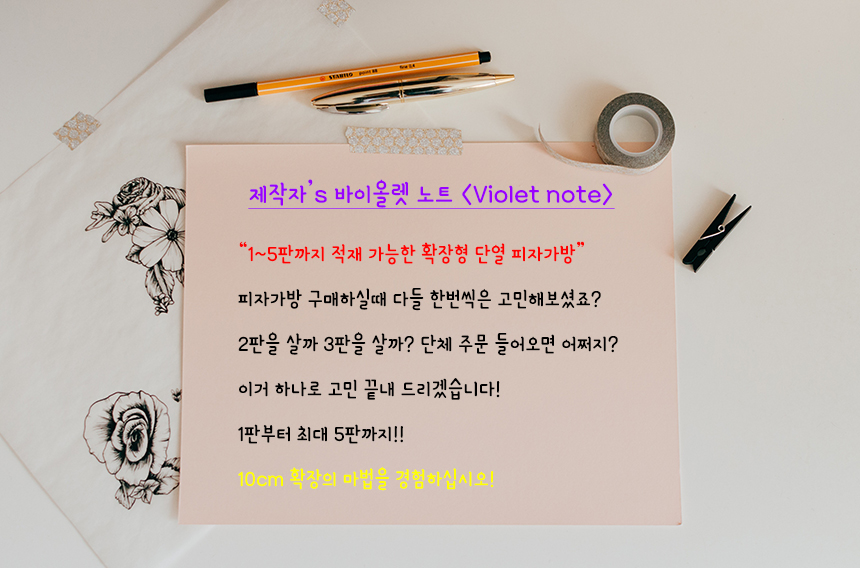 STABILO point 88 fine 0,4
제작자's 바이올렛 노트 <Violet note>
“1~5판까지 적재 가능한 확장형 단열 피자가방”
피자가방 구매하실때 다들 한번씩은 고민해보셨죠?
2판을 살까 3판을 살까? 단체 주문 들어오면 어쩌지?
이거 하나로 고민 끝내 드리겠습니다!
1판부터 최대 5판까지!!
10cm 확장의 마법을 경험하십시오!